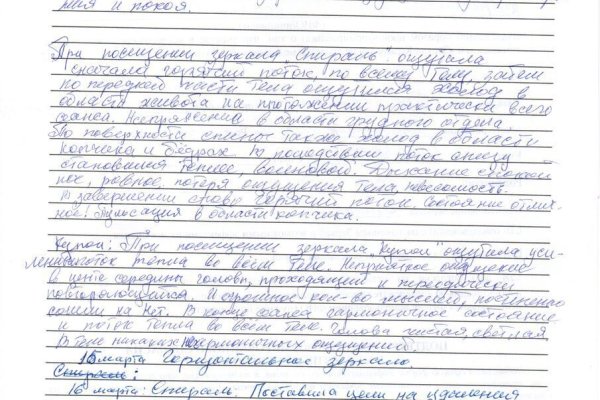 мия и покоя.
При посещении зеркала "Спираль" ощутила
сначала горячий поток, по всему телу, затем
по передней части тела ощущался холод в
области живота на протяжении практически всего
сеанса. Напряжение в области грудного отдела.
По поверхности спины также холод в области
копчика и бедрах. В последствии поток снизу
становился теплее, волновой. Дыхание спокой
ное, ровное, потеря ощущения тела, невесомость.
В завершении снова горячий поток. Состояние отлич-
ное. Пульсация в области копчика.
Купол: При посещении зеркала "Купол" ощутила уси-
ление поток тепла во всем теле. Неприятное ощущение
в центре середины головы, проходящий и периодически
повторяющийся. И огромное кол-во мыслей, постепенно
сошли на нет. В конце сеанса гармоничное состояние
и поток тепла во всем теле. Голова чистая, светлая,
в теле никаких не гармоничных ощущений.
15 марта Горизонтальное зеркало.
Спираль:
16 марта: Спираль. Поставила цели на удаления